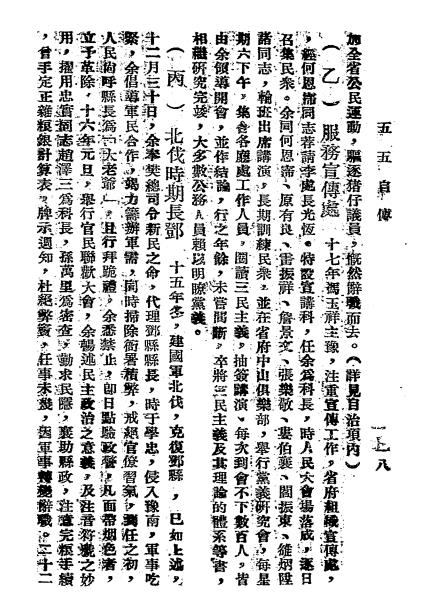 五五自傳
一一八
加全省公民運動，驅逐猪仔議員，慨然辭職而去。（詳見自治項內）
（乙）服務宣傳處　十七年馮玉祥主豫，注重宣傳工作，省府組織宣傳處，
，經何恩溥同志薦請李處長光恆。特設宣講科，任余為科長，時人民大會場落成，逐日
召集民衆。余同何恩溥、原有良、雷振祥、詹景文、張樂敬、婁伯襄、閻振東、雒炳陞
諸同志，輪班出席講演，長期訓練民衆。並在省府中山俱樂部，舉行黨義研究會，每星
期六下午，集合各廳處工作人員，閱讀三民主義，抽簽講演，每次到會不下數百人，皆
由余領導開會，並作結論，行之年餘，未嘗間斷。卒將三民主義及其理論的體系等書，
相繼研究完竣，大多數公務人員賴以明瞭黨義。
（丙）北伐時期長鄧　十五年冬，建國軍北伐，克復鄧縣，已如上述，
十二月三十日，余奉樊總司令新民之命，代理鄧縣縣長，時于學忠，侵入豫南，軍事吃
緊，余倡導軍民合作，竭力籌辦軍需，同時掃除衙署積弊，戒絕官僚習氣，到任之初，
人民尚呼縣長為「大老爺」，且行拜跪禮，余悉禁止，卽日點驗政警，凡面帶烟色者，
立予革除，十六年元旦，舉行官民聯歡大會，余暢述民主政治之意義，及注音符號之妙
用，擢用忠實同志趙澤三為科長，孫萬里為密查，勤求民隱，襄助縣政，注意完粮手續
，曾手定正雜粮銀計算表，牌示週知，杜絕弊竇，任事未幾，因軍事轉變辭職。二十二